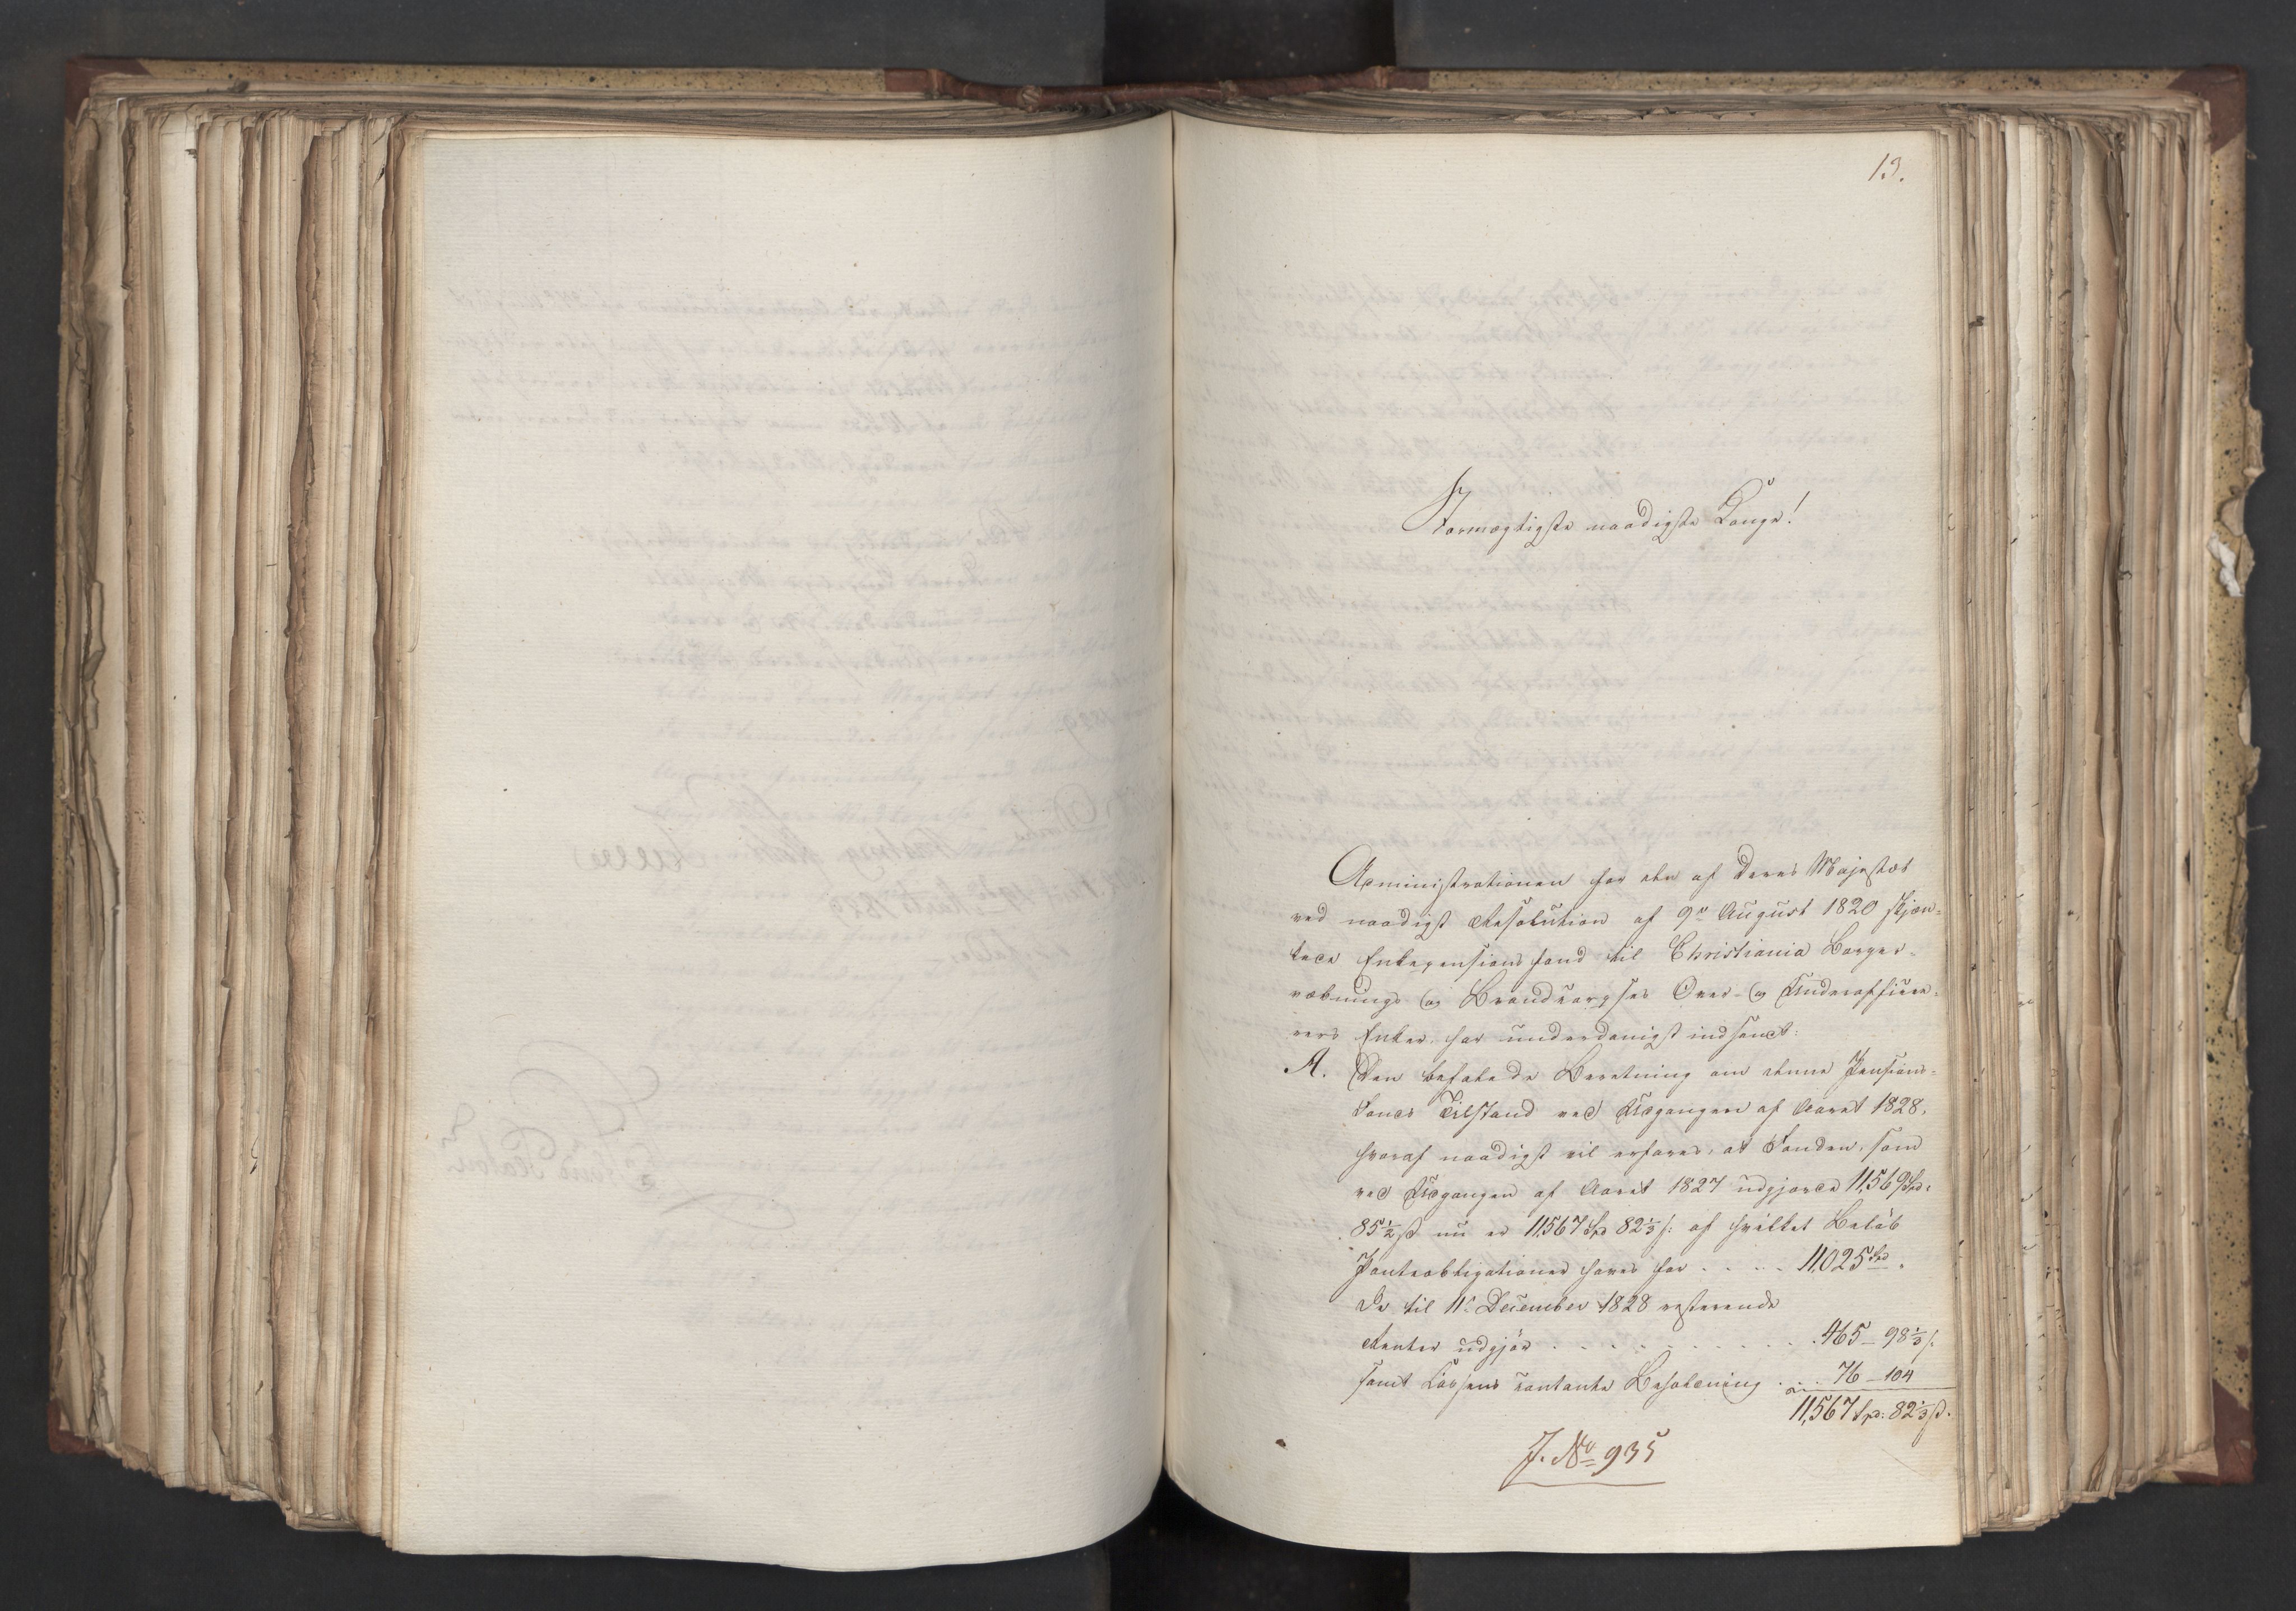 13.
Stormægtigste naadigste Konge!
Administrationen for den af Deres Majestæt
ved naadigst Resolution af 9de August 1820 skjæn-
kede Enkepensionsfond til Christiania Borger-
væbnings og Brandkorpses Over- og Underoffice-
rers Enker, har underdanigst indsendt:
A. Den befalede Beretning om denne Pensions-
Fonds Tilstand ved Udgangen af Aaret 1828,
hvoraf naadigst vil erfares, at Fonden, som
ved Udgangen af Aaret 1827 udgjorde 11,569 Spd.
85½ ß nu er 11,567 Spd 82⅓ ß: af hvilket Beløb
Panteobligationer haves for . . . . 11,025 Spd „
De til 11te December 1828 resterende
Renter udgjør . . . . . . . . . . 465 – 98⅓ ß:
samt Kassens contante Beholdning . . . 76 – 104
11,567 Spd: 82⅓ ß.
J. No 935